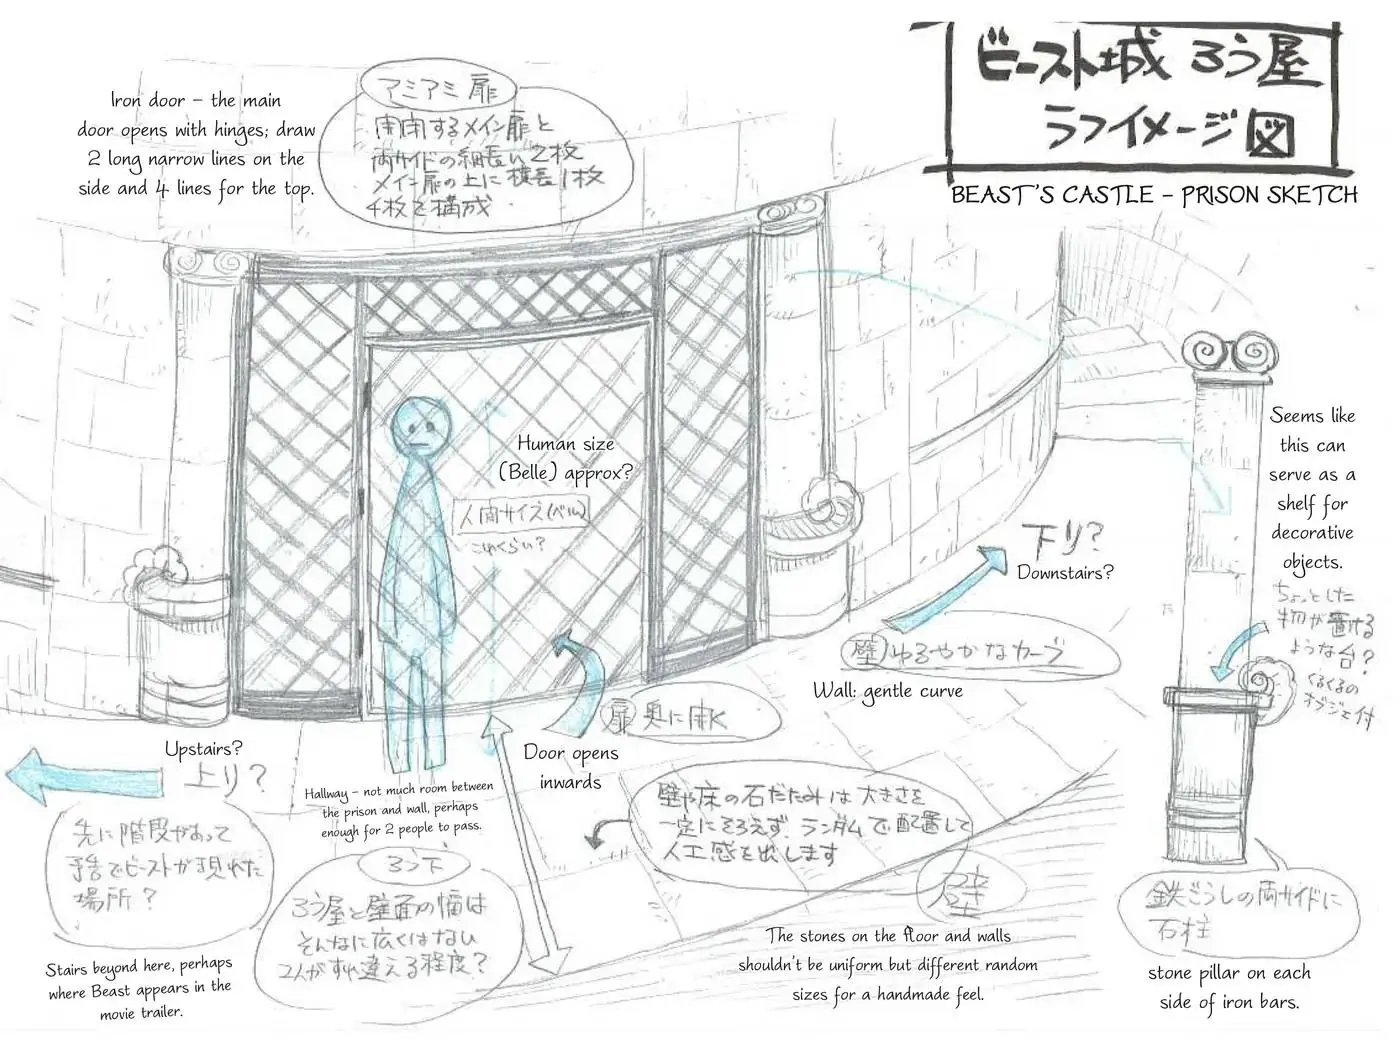 ビースト城 ろう屋
ラフイメージ図
BEAST'S CASTLE – PRISON SKETCH
Iron door – the main
door opens with hinges; draw
2 long narrow lines on the
side and 4 lines for the top.
アミアミ 扉
開閉するメイン扉と
両サイドの細長い2枚
メイン扉の上に横長1枚
4枚で構成
Human size
(Belle) approx?
人間サイズ(ベル)
これくらい?
Seems like
this can
serve as a
shelf for
decorative
objects.
ちょっとした
物が置ける
ような台?
くるくるの
オブジェ付
下り?
Downstairs?
壁 ゆるやかなカーブ
Wall: gentle curve
扉 奥に開く
Door opens
inwards
Upstairs?
上り?
先に階段があって
予告でビーストが現れた
場所?
Stairs beyond here, perhaps
where Beast appears in the
movie trailer.
Hallway – not much room between
the prison and wall, perhaps
enough for 2 people to pass.
ろう下
ろう屋と壁面の幅は
そんなに広くはない
2人がすれ違える程度?
壁や床の石だたみは大きさを
一定にそろえず、ランダムで配置して
人工感を出します
壁
The stones on the floor and walls
shouldn't be uniform but different random
sizes for a handmade feel.
鉄ごうしの両サイドに
石柱
stone pillar on each
side of iron bars.